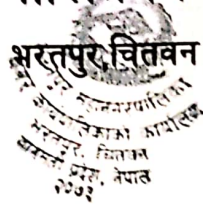 भरतपुर, चितवन
महानगरपालिका
नगर कार्यपालिकाको कार्यालय
भरतपुर, चितवन
बागमती प्रदेश, नेपाल
२०७३